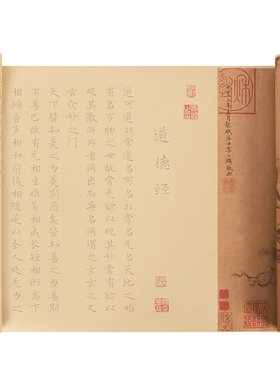 道德经
道可道非常道名可名非常名无名天地之始
有名万物之母故常无欲以观其妙常有欲以
观其徼此两者同出而异名同谓之玄玄之又
玄众妙之门
天下皆知美之为美斯恶矣皆知善之为善斯
不善已故有无相生难易相成长短相形高下
相倾音声相和前后相随是以圣人处无为之